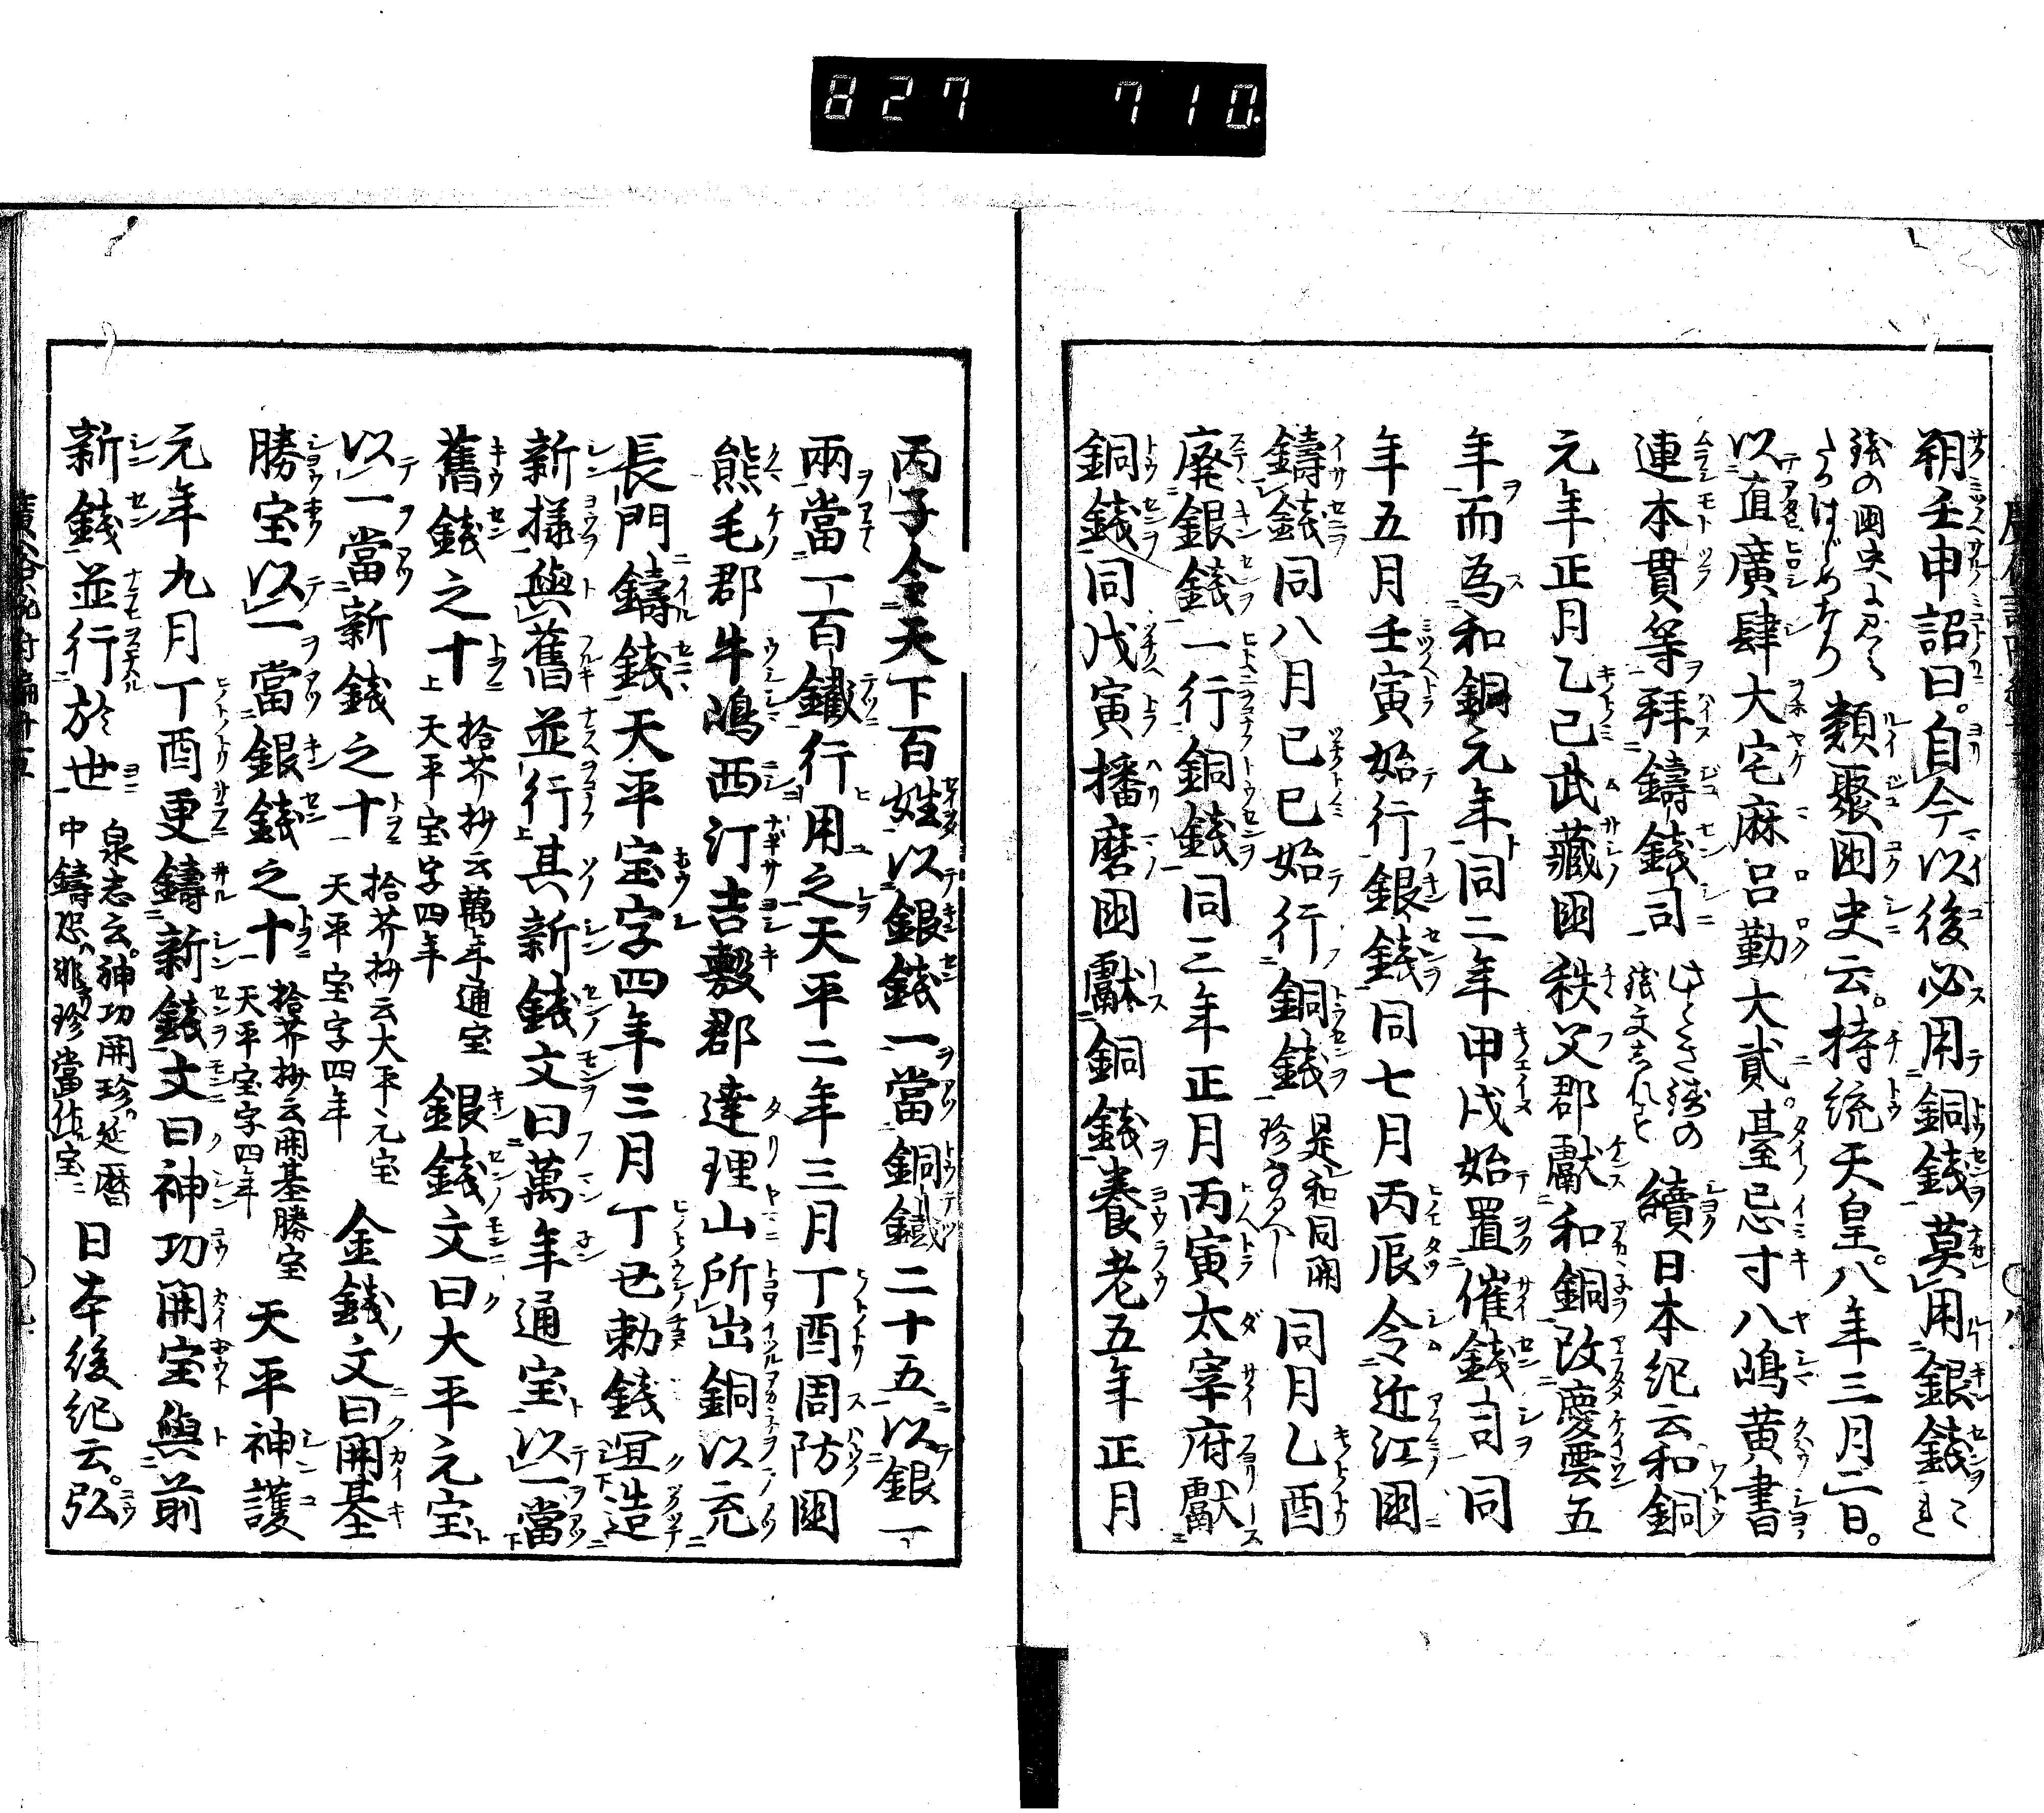 827 710
朔壬申詔曰。自今以後必用銅錢莫用銀錢これ
錢の国史に見えたるはじめなり 類聚国史云。持統天皇。八年三月二日。
以直廣肆大宅麻呂勤大貳。臺忌寸八嶋黄書
連本貫等拜鑄錢司 錢文 續日本紀云和銅
元年正月乙巳武藏国秩父郡獻和銅改慶雲五
年而為和銅元年同二年甲戌始置催錢司同
年五月壬寅始行銀錢同七月丙辰令近江国
鑄錢同八月己巳始行銅錢 是和同開珍なるべし 同月乙酉
廃銀錢一行銅錢同三年正月丙寅太宰府獻
銅錢同戊寅播磨国獻銅錢養老五年正月
丙子令天下百姓以銀錢一當銅鐵二十五以銀一
兩當一百鐵行用之天平二年三月丁酉周防国
熊毛郡牛嶋西汀吉敷郡達理山所出銅以充
長門鑄錢天平宝字四年三月丁丑勅錢冝造
新様與舊並行其新錢文曰萬年通宝以一當
舊錢之十 拾芥抄云萬年通宝天平宝字四年 銀錢文曰大平元宝
以一當新錢之十 拾芥抄云大平元宝天平宝字四年 金錢文曰開基
勝宝以一當銀錢之十 拾芥抄云開基勝宝天平宝字四年 天平神護
元年九月丁酉更鑄新錢文曰神功開宝與前
新錢並行於世 泉志云。神功開珍延暦中鑄恐非珍當作宝 日本後紀云。弘